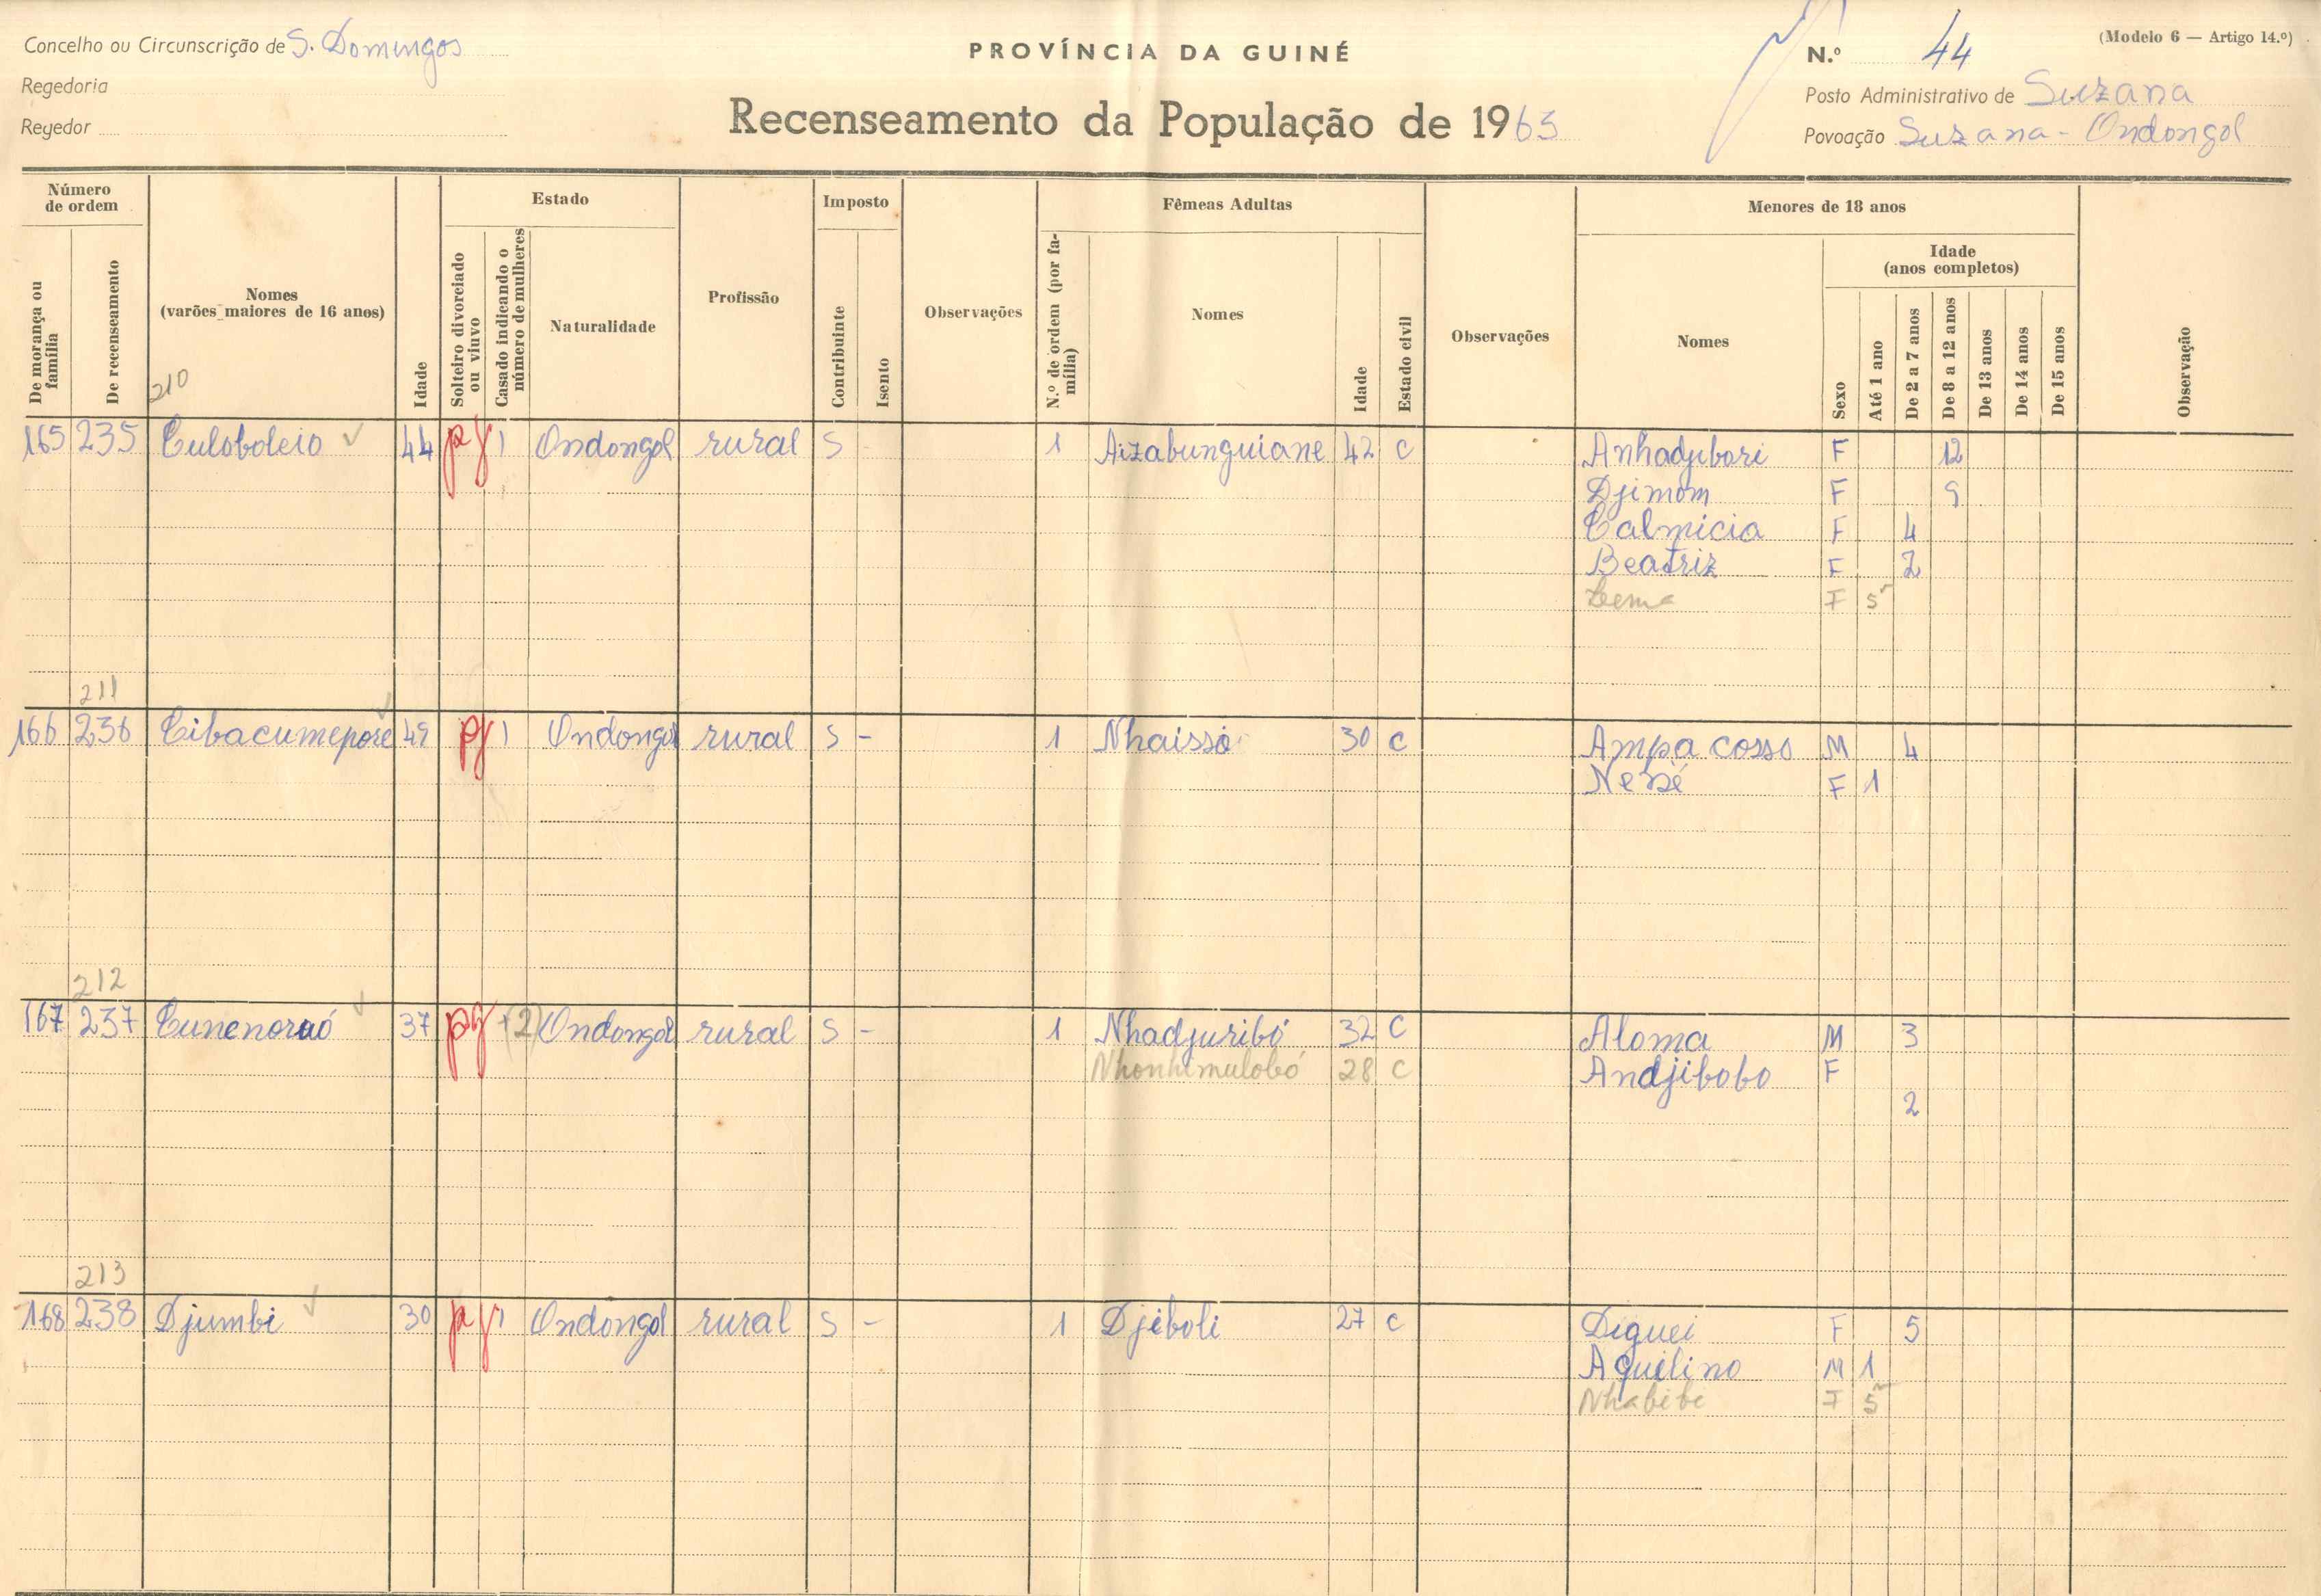 Concelho ou Circunscrição de S. Domingos
Regedoria
Regedor
PROVÍNCIA DA GUINÉ
Recenseamento da População de 1963
(Modelo 6 — Artigo 14.º)
N.º 44
Posto Administrativo de Suzana
Povoação Suzana - Ondongol
Número de ordem
De morança ou família
De recenseamento
Nomes
(varões maiores de 16 anos)
Idade
Estado
Solteiro divorciado ou viuvo
Casado indicando o número de mulheres
Naturalidade
Profissão
Imposto
Contribuinte
Isento
Observações
Fêmeas Adultas
N.º de ordem (por família)
Nomes
Idade
Estado civil
Observações
Menores de 18 anos
Nomes
Sexo
Idade
(anos completos)
Até 1 ano
De 2 a 7 anos
De 8 a 12 anos
De 13 anos
De 14 anos
De 15 anos
Observação
210
165 235 Culoboleio 44 pg 1 Ondongol rural S - 1 Aizabunguiane 42 C Anhadjibori F 12
Djimom F 9
Calmicia F 4
Beatriz F 2
F 5
211
166 236 Cibacumepore 49 pg 1 Ondongol rural S - 1 Nhaisso 30 C Ampa cosso M 4
F 1
212
167 237 Cunenoraó 37 pg (2) Ondongol rural S - 1 Nhadjuribó 32 C Aloma M 3
Nhonhimulobó 28 C Andjibobo F
2
213
168 238 Djumbi 30 pg 1 Ondongol rural S - 1 Djiboli 27 C Diguei F 5
Aquilino M 1
Nhabibi F 5